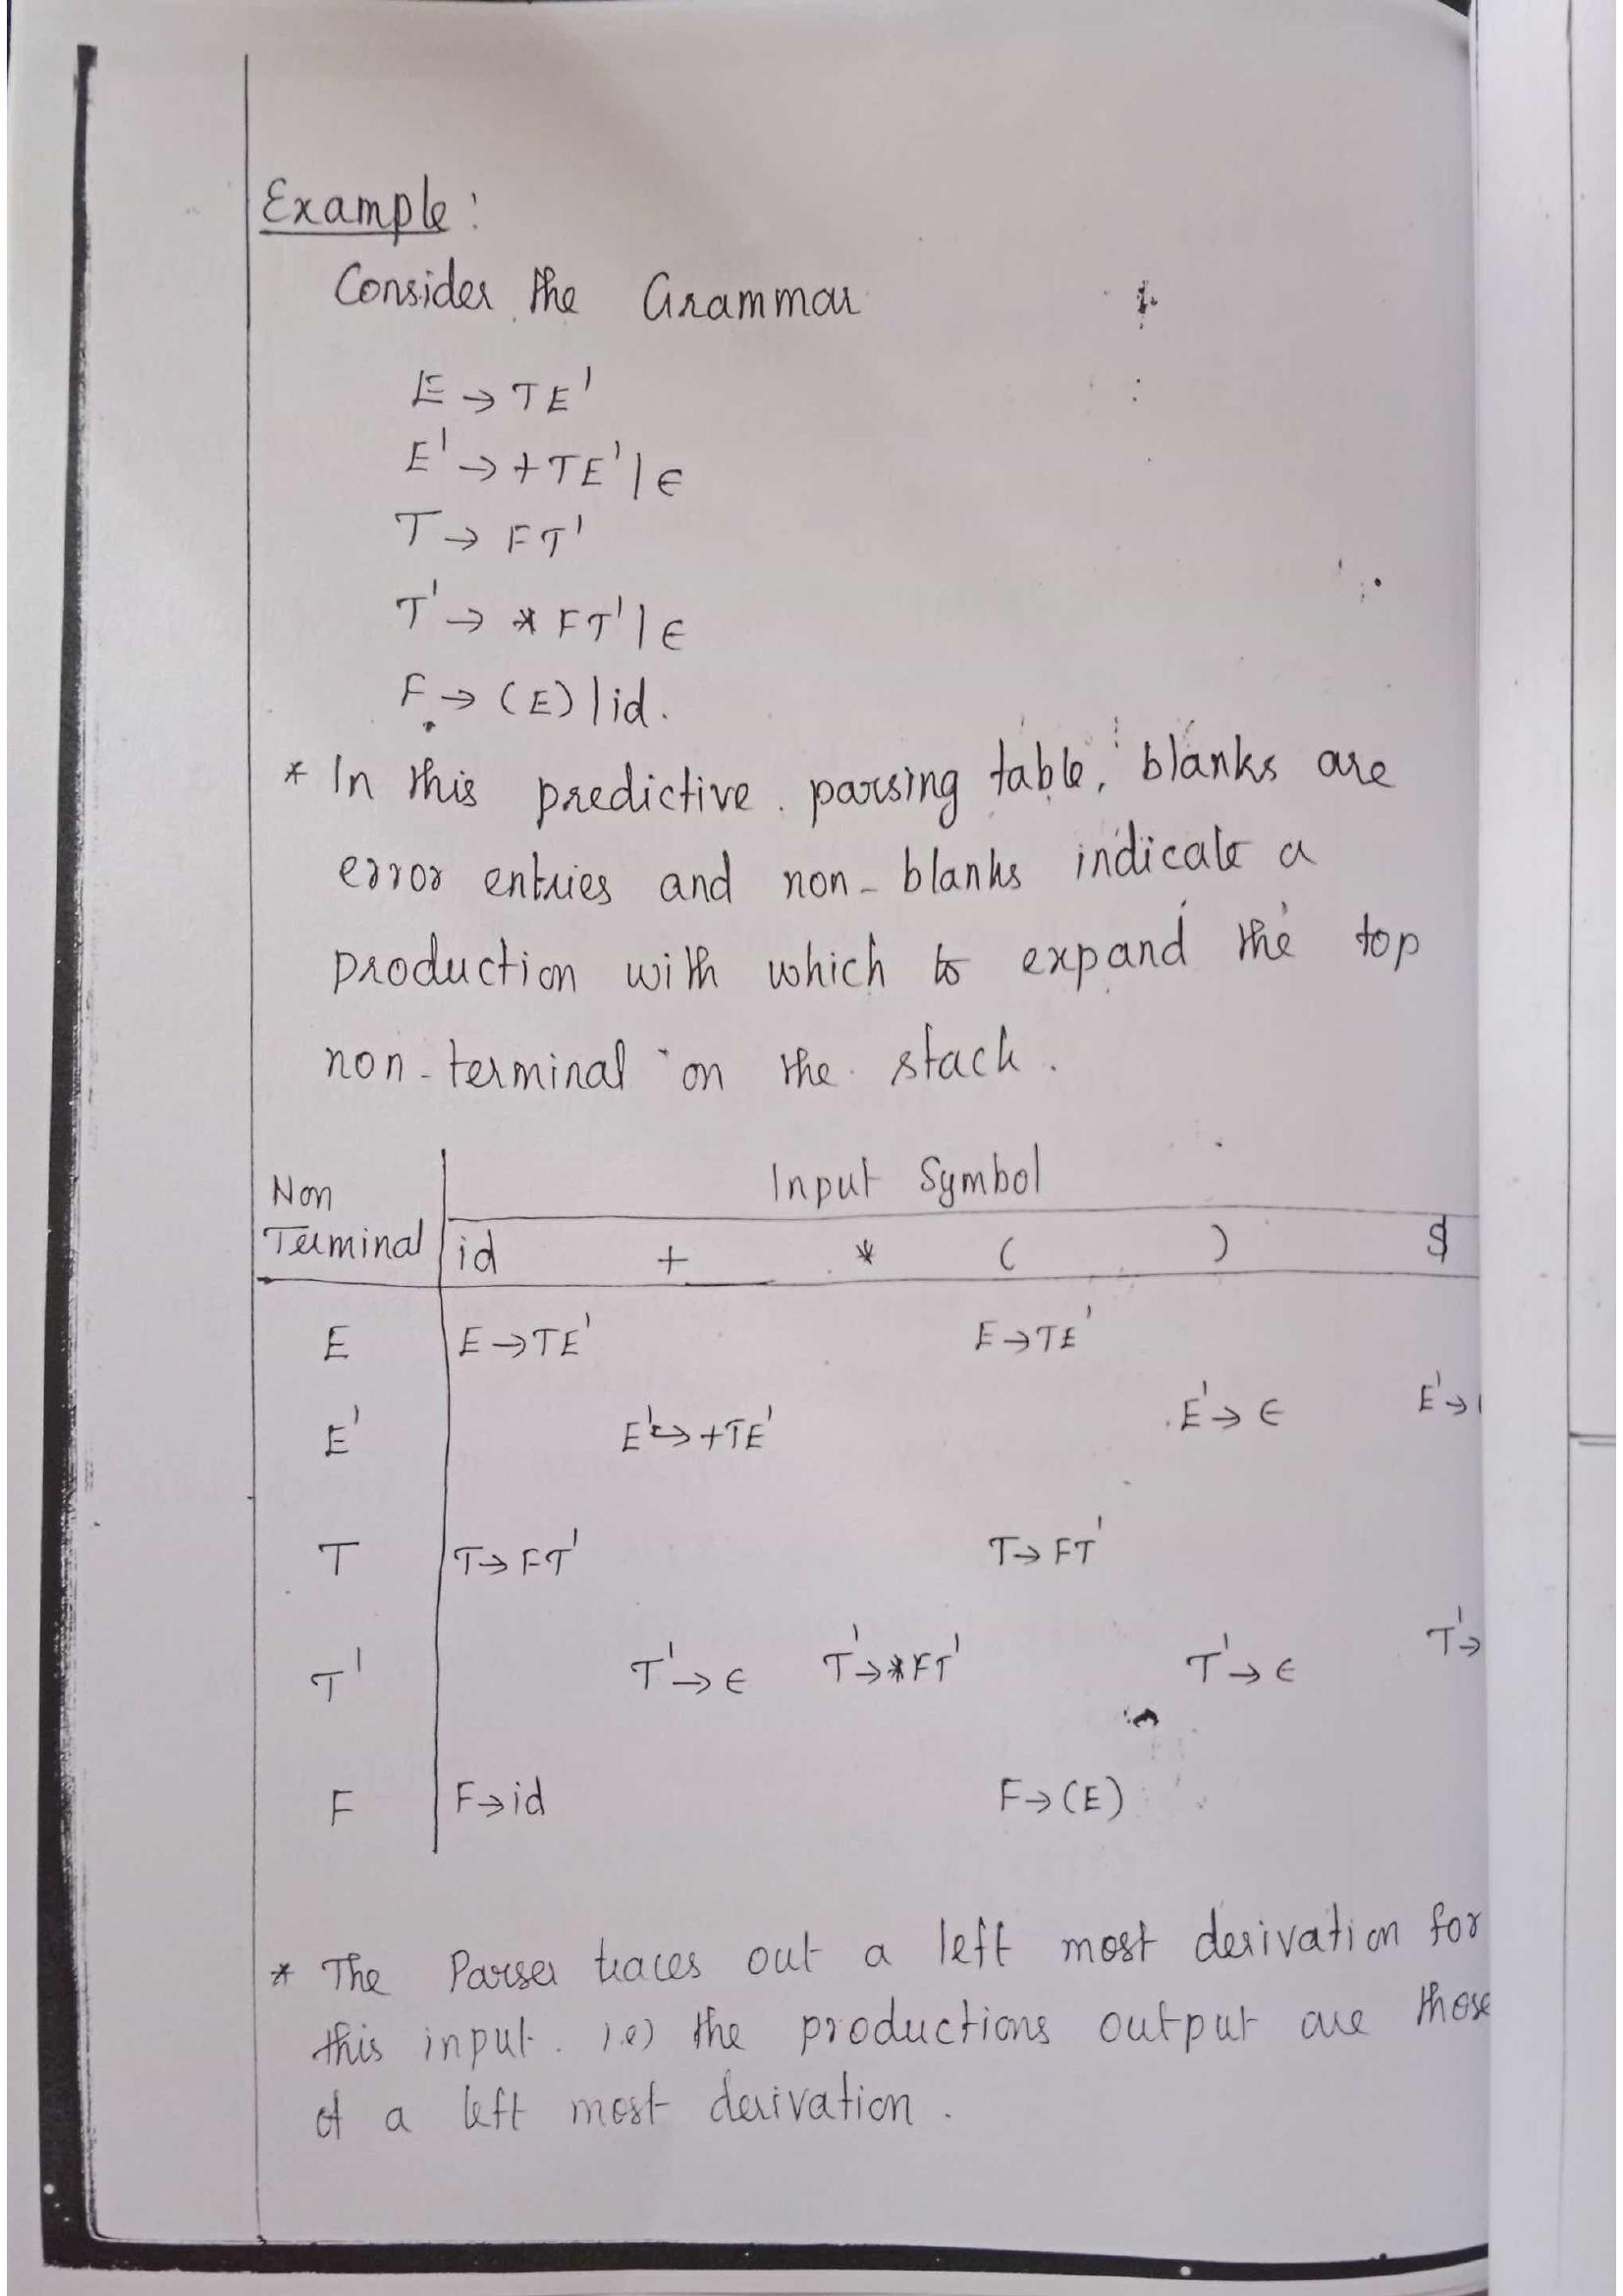 Example:
Consider the Grammar
E → TE'
E' → +TE' | ∈
T → FT'
T' → * FT' | ∈
F → (E) | id.
* In this predictive parsing table, blanks are
error entries and non-blanks indicate a
production with which to expand the top
non-terminal on the stack.
Non Input Symbol
Terminal id + * ( ) $
E E → TE' E → TE'
E' E' → +TE' E' → ∈ E' →
T T → FT' T → FT'
T' T' → ∈ T' → *FT' T' → ∈ T' →
F F → id F → (E)
* The Parser traces out a left most derivation for
this input. i.e) the productions output are those
of a left most derivation.